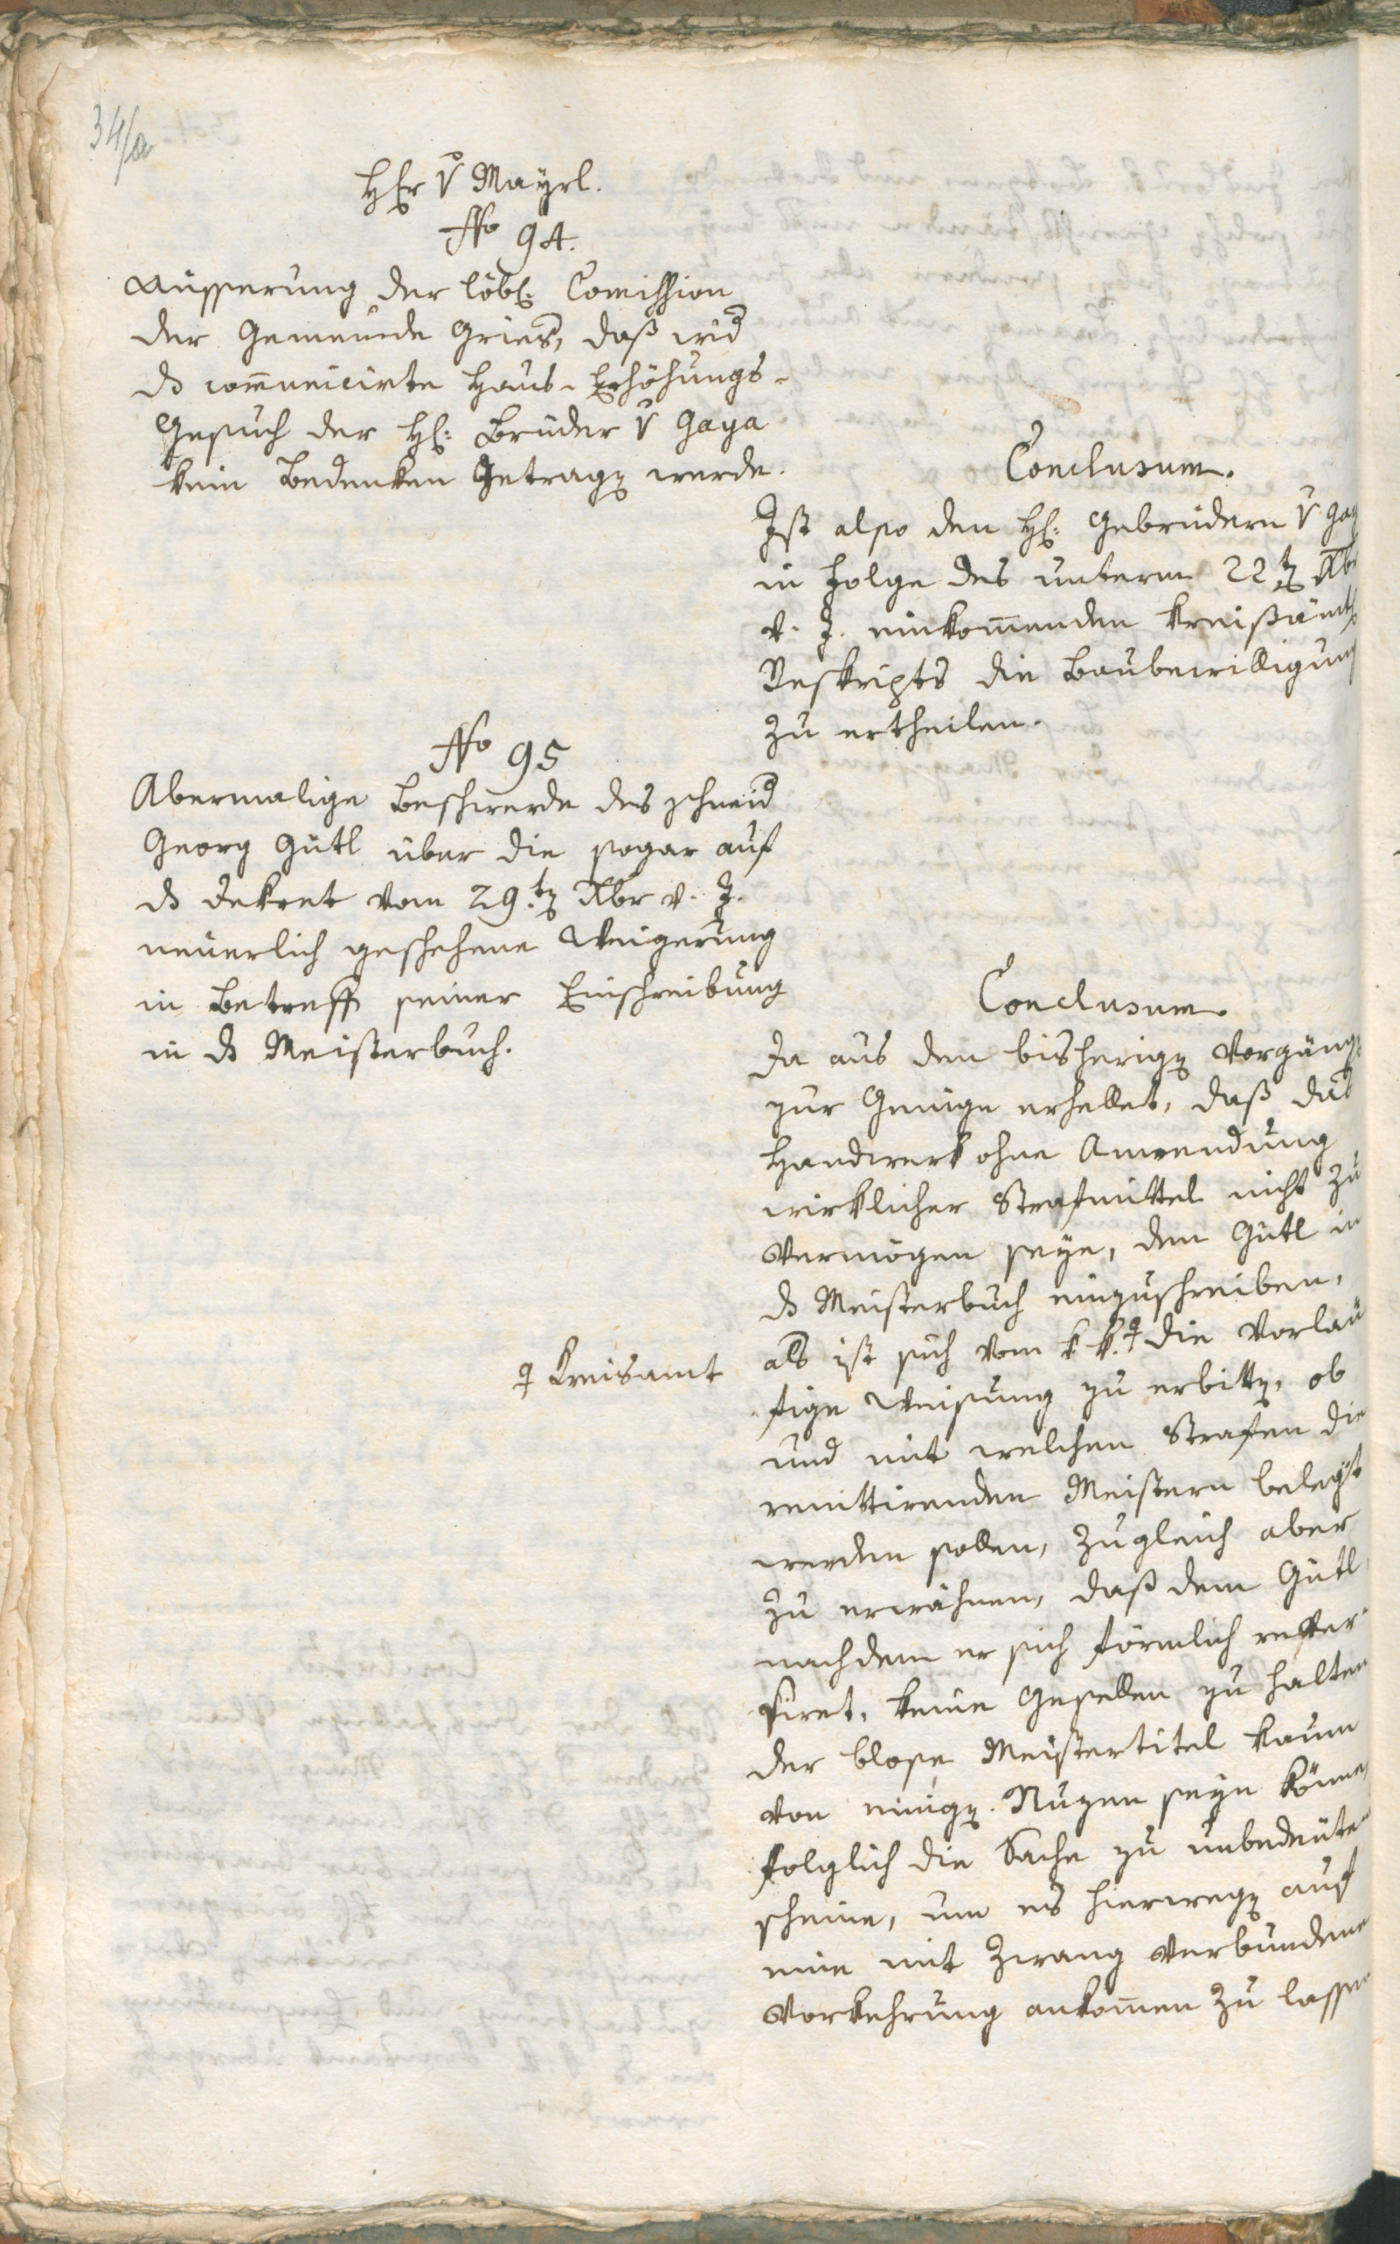 34/a
HEr v Mayrl.
No 94.
Aüsserung der löbl: Comission
der Gemeinde Gries, daß wid
ds communicirte Haus-Erhöhungs-
Gesuch der H: Brüder v Gaya
kein Bedenken getragen werde.
Conclusum.
Ist also den H: Gebrüdern v Gay
in Folge des unterm 22ten Xbr
v. J. einkommenden kreißämtl
Reskripts die Baubewilligung
zu ertheilen.
No 95
Abermalige Beschwerde des schneid
Georg Gütl über die sogar auf
ds Dekret vom 29.ten Xbr v. J.
neuerlich geschehene Weigerung
in Betreff seiner Einschreibung
in ds Meisterbuch.
Conclusum.
Da aus den bisherigen Vorgäng
zur Genüge erhellet, daß das
Handwerk ohne Anwendung
wirklicher Strafmittel nicht zu
vermögen seye, den Gütl in
ds Meisterbuch einzuschreiben,
als ist sich vom k k. die vorläu
Kreisamt
fige Weisung zu erbitten, ob
und mit welchen Strafen die
renittirenden Meistern belegt
werden sollen, zugleich aber
zu erwähnen, daß dem Gütl
nachdem er sich förmlich rever
siret, keine Gesellen zu halten
der blose Meistertitel kaum
von einigen Nuzen seyn könne,
folglich die Sache zu unbedeuten
scheine, um es hierwegen auf
eine mit Zwang verbundene
Vorkehrung ankommen zu lassen